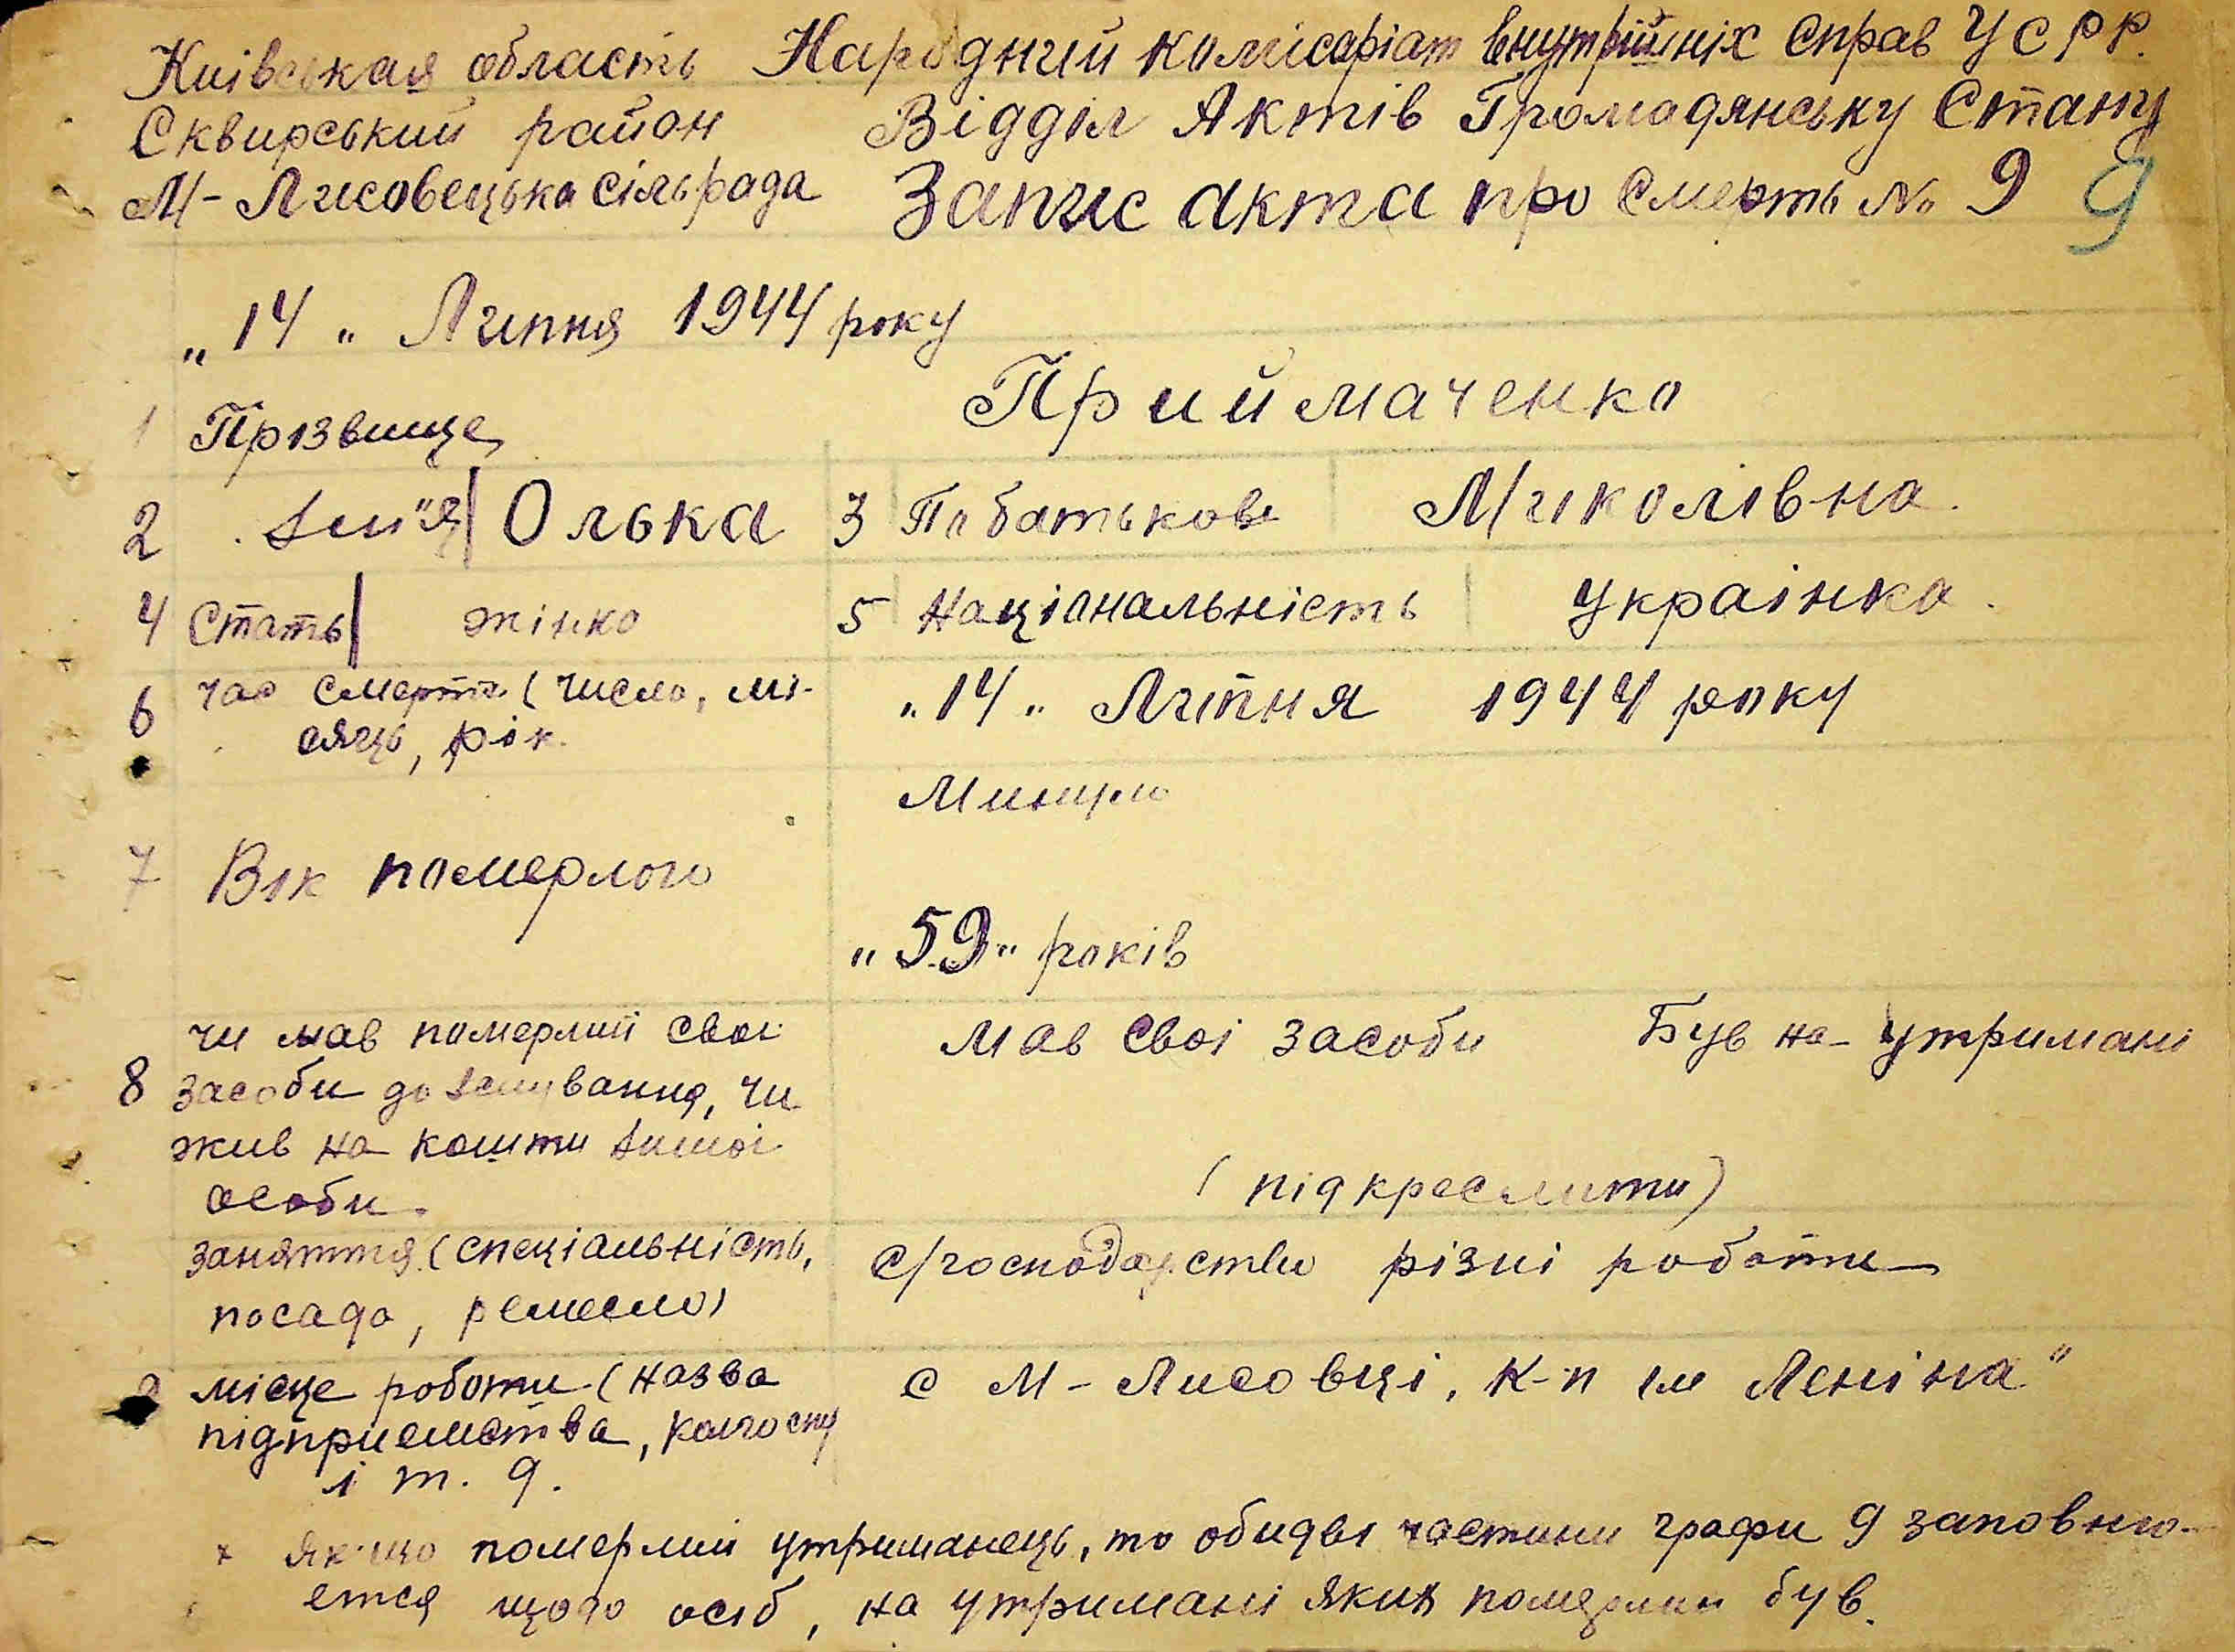 Киівськая область Народний комісаріат внутрійшніх справ УСРР.
Сквирський район Відділ Актів Громадянську Стану
М-Лисовецька сільрада Запис акта про смерть № 9 9
„14„ Липня 1944 року
1 Прізвище Прийmаченко
2 Ім"я Олька 3 По батькове Миколівна.
4 Стать жінка 5 Національність Українка.
6 час смерти (число, мі- „14„ Липня 1944 року
сяць, рік.
Минуло
7 Вік померлого
„59„ років
чи мав померлий своі мав своі засоби Був на утримані
8 засоби до існування, чи
жив на кошти іншоі
особи. (підкреслити)
заняття (спеціальність, с/господарство різні роботи
посада, ремесло)
9 місце роботи (назва с М-Лисовці, К-п ім Леніна"
підприємства, колгоспу
і т. д.
х якщо померлий утриманець, то обидві частини графи 9 заповню-
ется щодо осіб, на утримані яких померлий був.